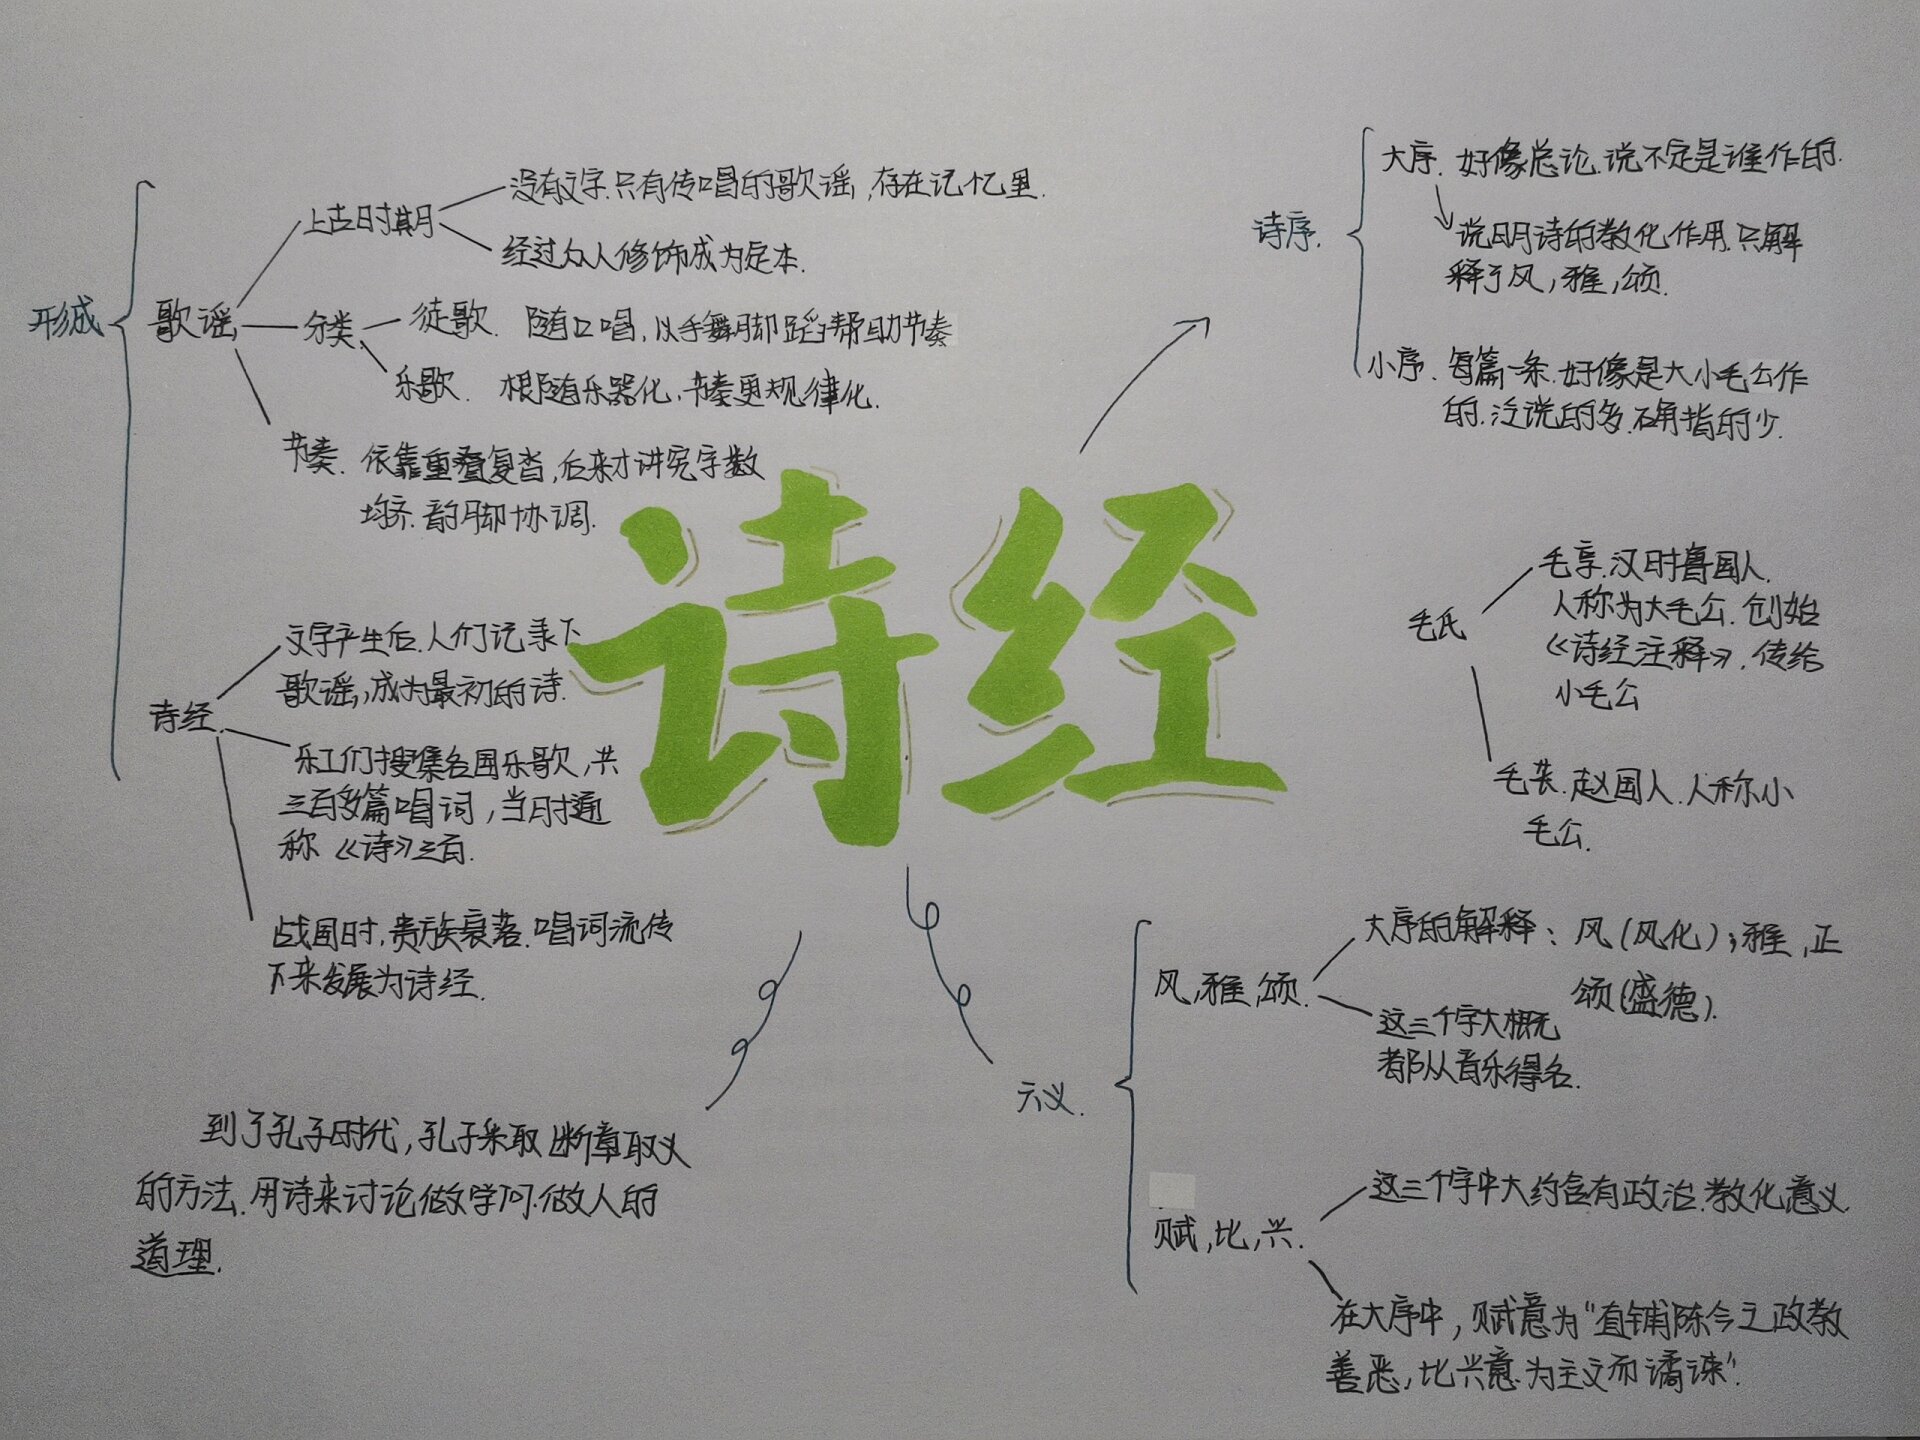 诗经
形成
歌谣
上古时期
没有文字.只有传唱的歌谣,存在记忆里.
经过众人修饰成为定本.
分类
徒歌. 随口唱,以手舞脚蹈帮助节奏
乐歌. 根随乐器化,节奏更规律化.
节奏. 依靠重叠复沓,后来才讲究字数
均齐.韵脚协调.
诗经.
文字产生后.人们记录下
歌谣,成为最初的诗.
乐工们搜集各国乐歌,共
三百多篇唱词,当时通
称《诗》三百.
战国时,贵族衰落.唱词流传
下来发展为诗经.
到了孔子时代,孔子采取断章取义
的方法.用诗来讨论做学问.做人的
道理.
诗序.
大序. 好像总论.说不定是谁作的.
说明诗的教化作用.只解
释了风,雅,颂.
小序. 每篇一条.好像是大小毛公作
的.泛说的多.确指的少.
毛氏
毛亨.汉时鲁国人.
人称为大毛公.创始
《诗经注释》.传给
小毛公
毛苌.赵国人.人称小
毛公.
六义.
风,雅,颂.
大序的解释: 风(风化);雅,正
颂(盛德).
这三个字大概
都从音乐得名.
赋,比,兴.
这三个字中大约含有政治.教化意义
在大序中,赋意为“直铺陈今之政教
善恶,比兴意为主文而谲谏”.